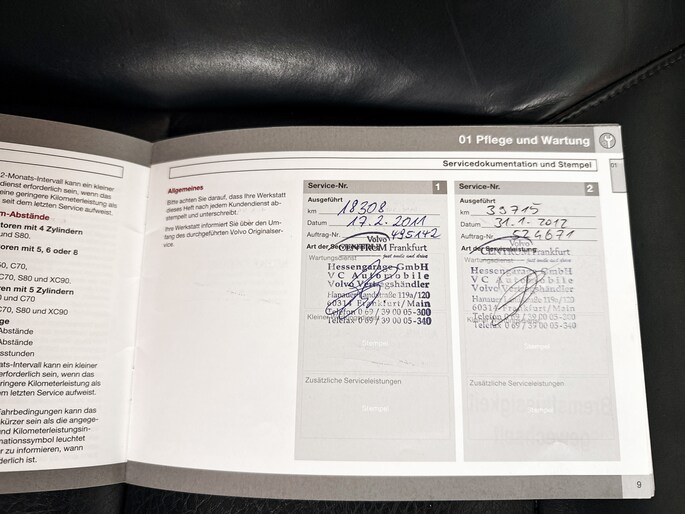 2-Monats-Intervall kann ein kleiner
dienst erforderlich sein, wenn das
eine geringere Kilometerleistung als
seit dem letzten Service aufweist.
m-Abstände
toren mit 4 Zylindern
und S80.
oren mit 5, 6 oder 8
60, C70,
C70, S80 und XC90.
ren mit 5 Zylindern
0 und C70
C70, S80 und XC90.
ge
Abstände
Abstände
sstunden
ats-Intervall kann ein kleiner
erforderlich sein, wenn das
geringere Kilometerleistung als
m letzten Service aufweist.
Fahrbedingungen kann das
kürzer sein als die angege-
und Kilometerleistungsin-
mationssymbol leuchtet
r zu informieren, wann
derlich ist.
01 Pflege und Wartung
Servicedokumentation und Stempel
01
Allgemeines
Bitte achten Sie darauf, dass Ihre Werkstatt
dieses Heft nach jedem Kundendienst ab-
stempelt und unterschreibt.
Ihre Werkstatt informiert Sie über den Um-
fang des durchgeführten Volvo Originalser-
vice.
Service-Nr. 1
Ausgeführt
km 18308
Datum 17.2.2011
Auftrag-Nr. 495142
Art der
Volvo
CENTRUM Frankfurt
just smile and drive
Wartungsdienst
Hessengarage GmbH
VC Automobile
Volvo Vertragshändler
Hanauer Landstraße 119a/120
60314 Frankfurt/Main
Kleiner
Telefon 0 69 / 39 00 05-300
Telefax 0 69 / 39 00 05-340
Stempel
Zusätzliche Serviceleistungen
Stempel
Service-Nr. 2
Ausgeführt
km 39715
Datum 31.1.2012
Auftrag-Nr. 524671
Art der Serviceleistung
Volvo
CENTRUM Frankfurt
just smile and drive
Wartungsdienst
Hessengarage GmbH
VC Automobile
Volvo Vertragshändler
Hanauer Landstraße 119a/120
60314 Frankfurt/Main
Kleiner
Telefon 0 69 / 39 00 05-300
Telefax 0 69 / 39 00 05-340
Stempel
Zusätzliche Serviceleistungen
Stempel
9